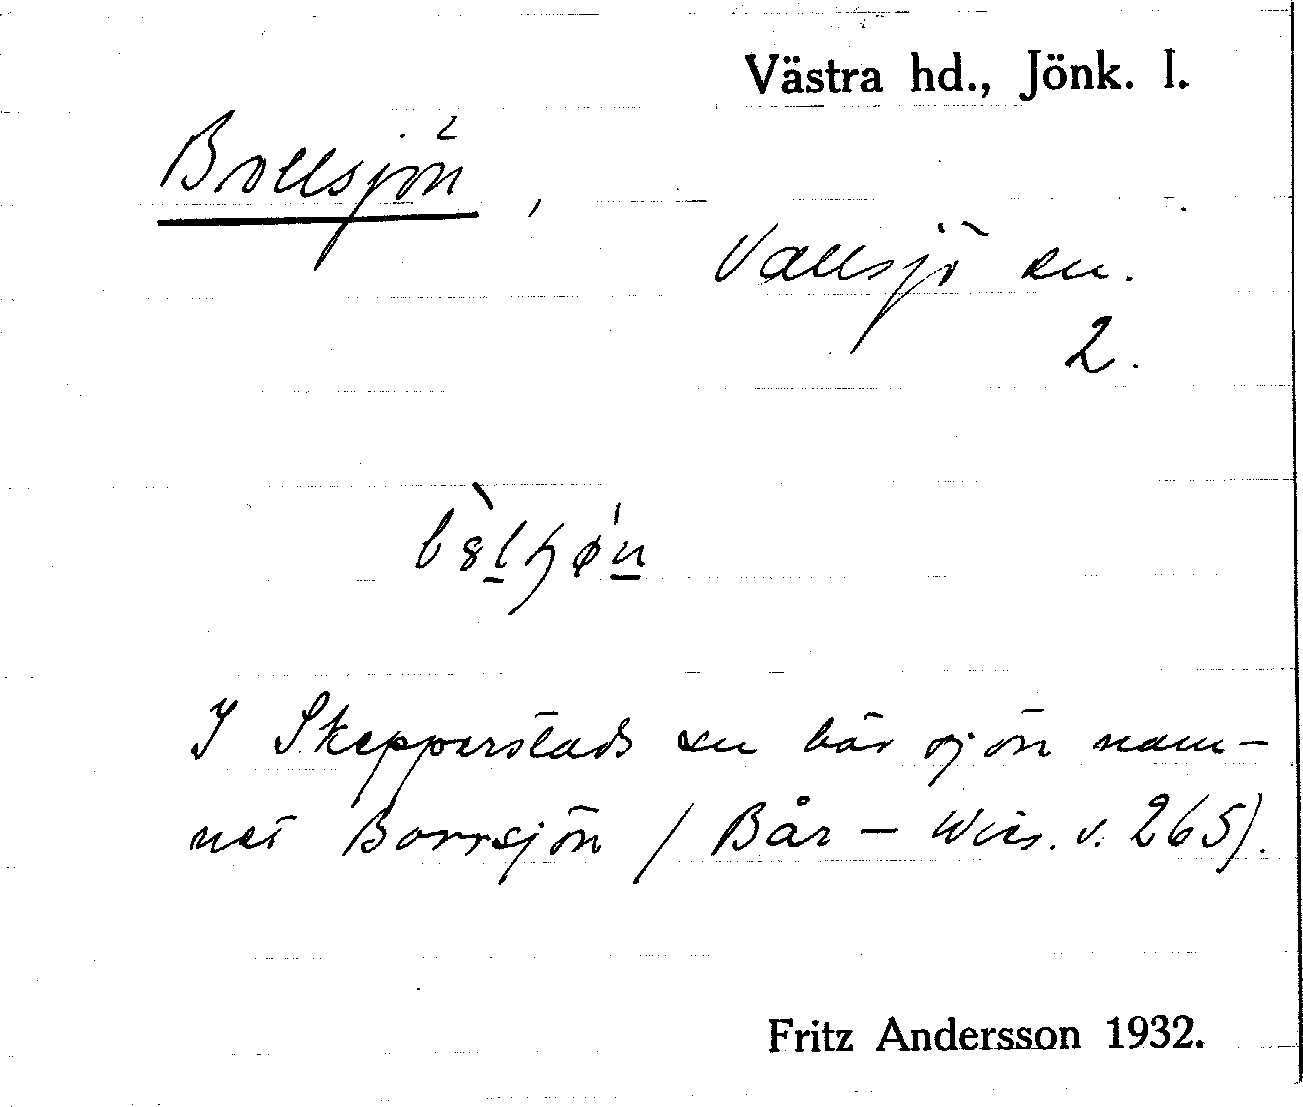 Västra hd., Jönk. l.
Bollsjön,
Vallsjö sn.
2.
I Skepperstads sn bär sjön nam-
net Borrsjön (Bår – Wies. s. 265).
Fritz Andersson 1932.